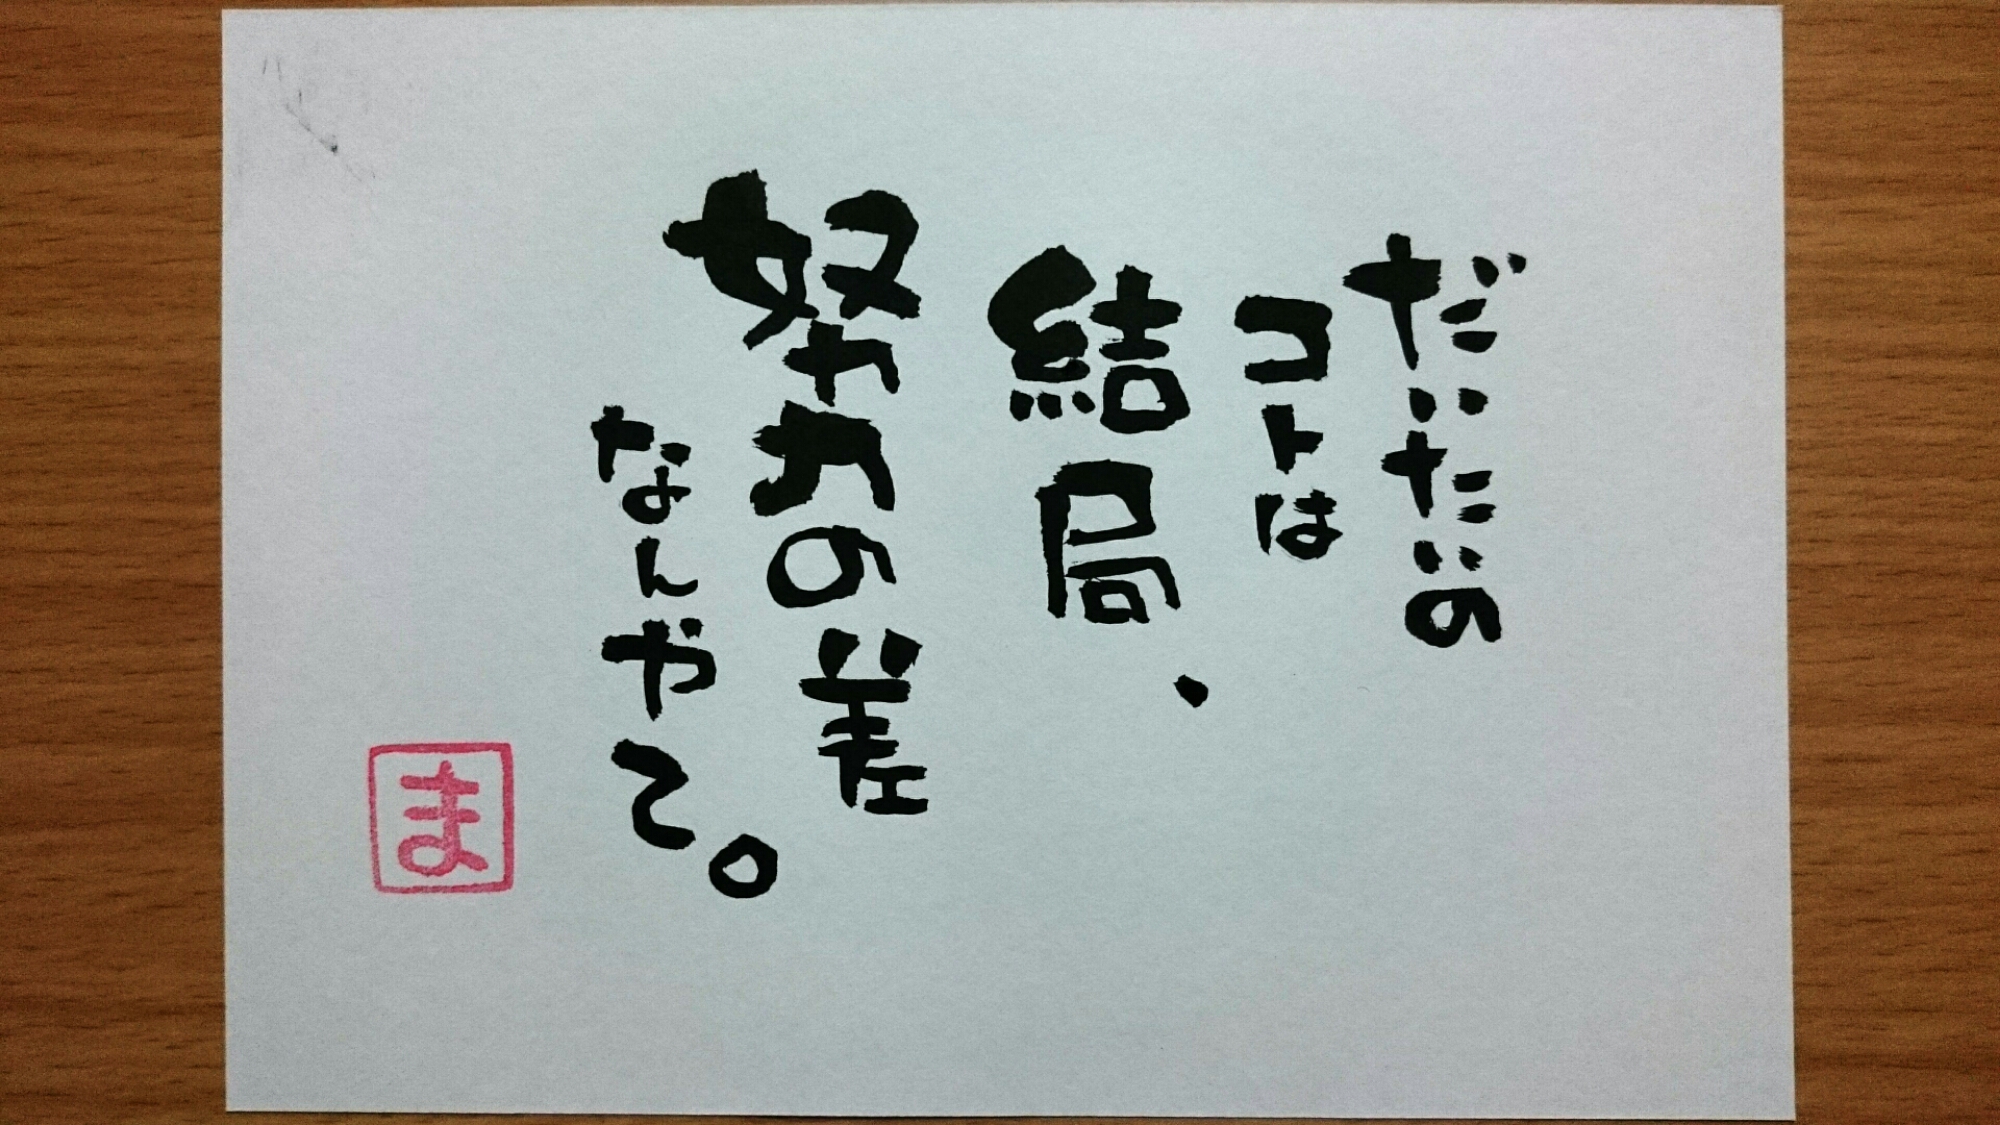 だいたいの
コトは
結局、
努力の差
なんやて。
ま